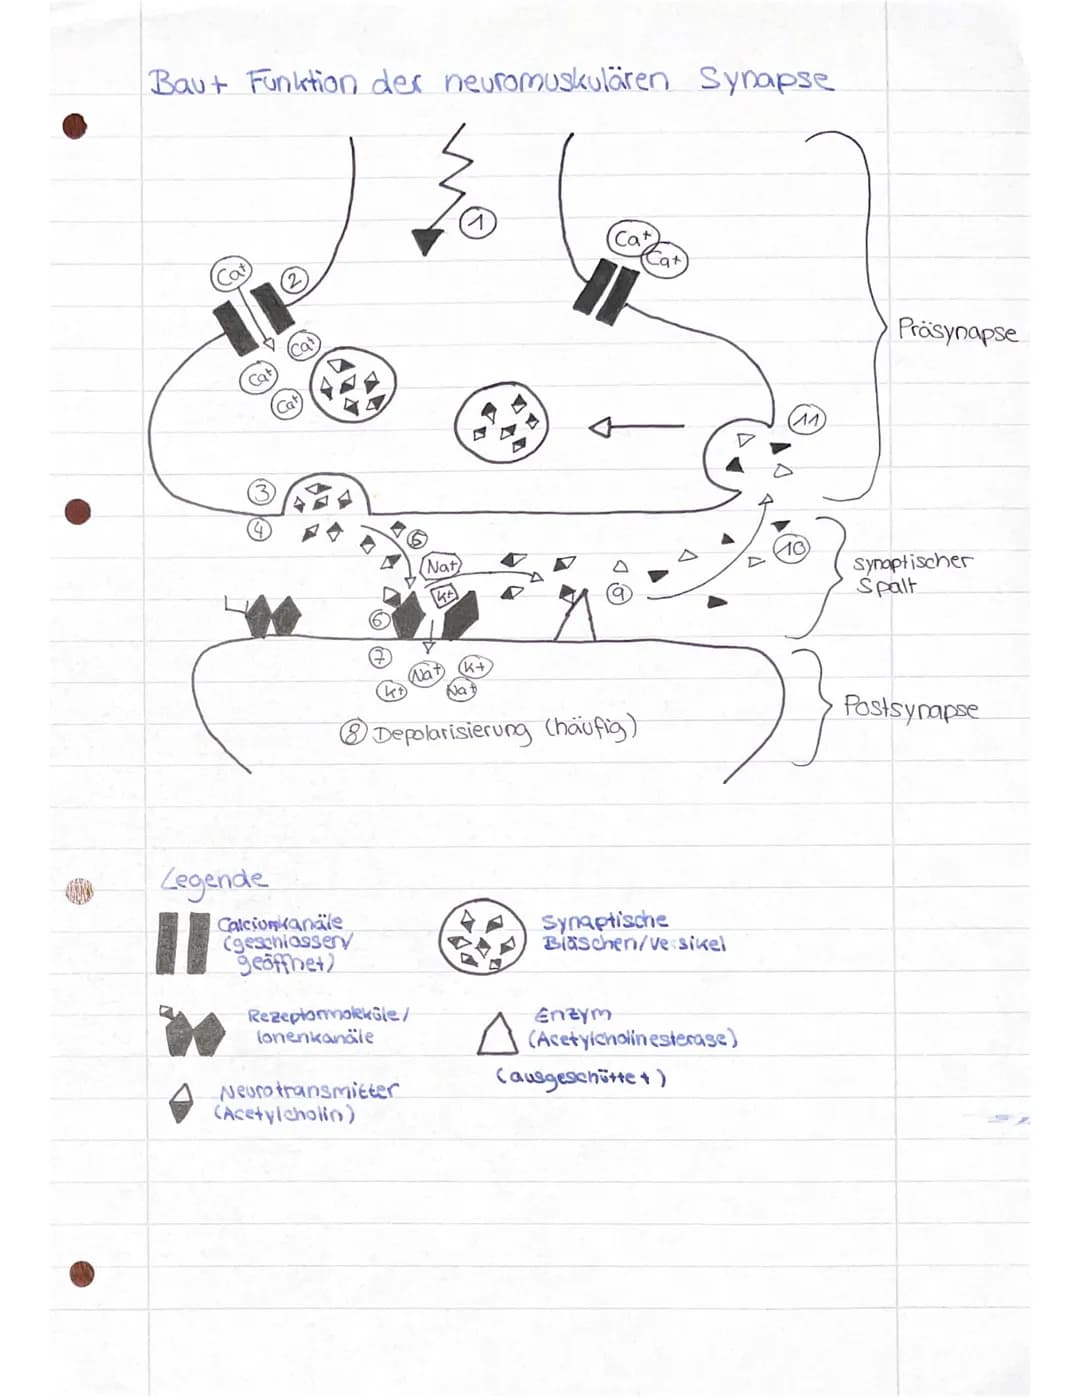 Bau + Funktion der neuromuskulären Synapse
1
Ca+
Ca+
Ca+
2
Ca+
Ca+
Ca+
Präsynapse
11
3
4
5
Na+
K+
10
synaptischer
Spalt
9
6
7
Na+
K+
K+
Na+
8 Depolarisierung (häufig)
Postsynapse
Legende
Calciumkanäle
(geschlossen/
geöffnet)
Synaptische
Bläschen/Versikel
Rezeptormoleküle/
Ionenkanäle
Enzym
(Acetylcholinesterase)
(ausgeschüttet)
Neurotransmitter
(Acetylcholin)